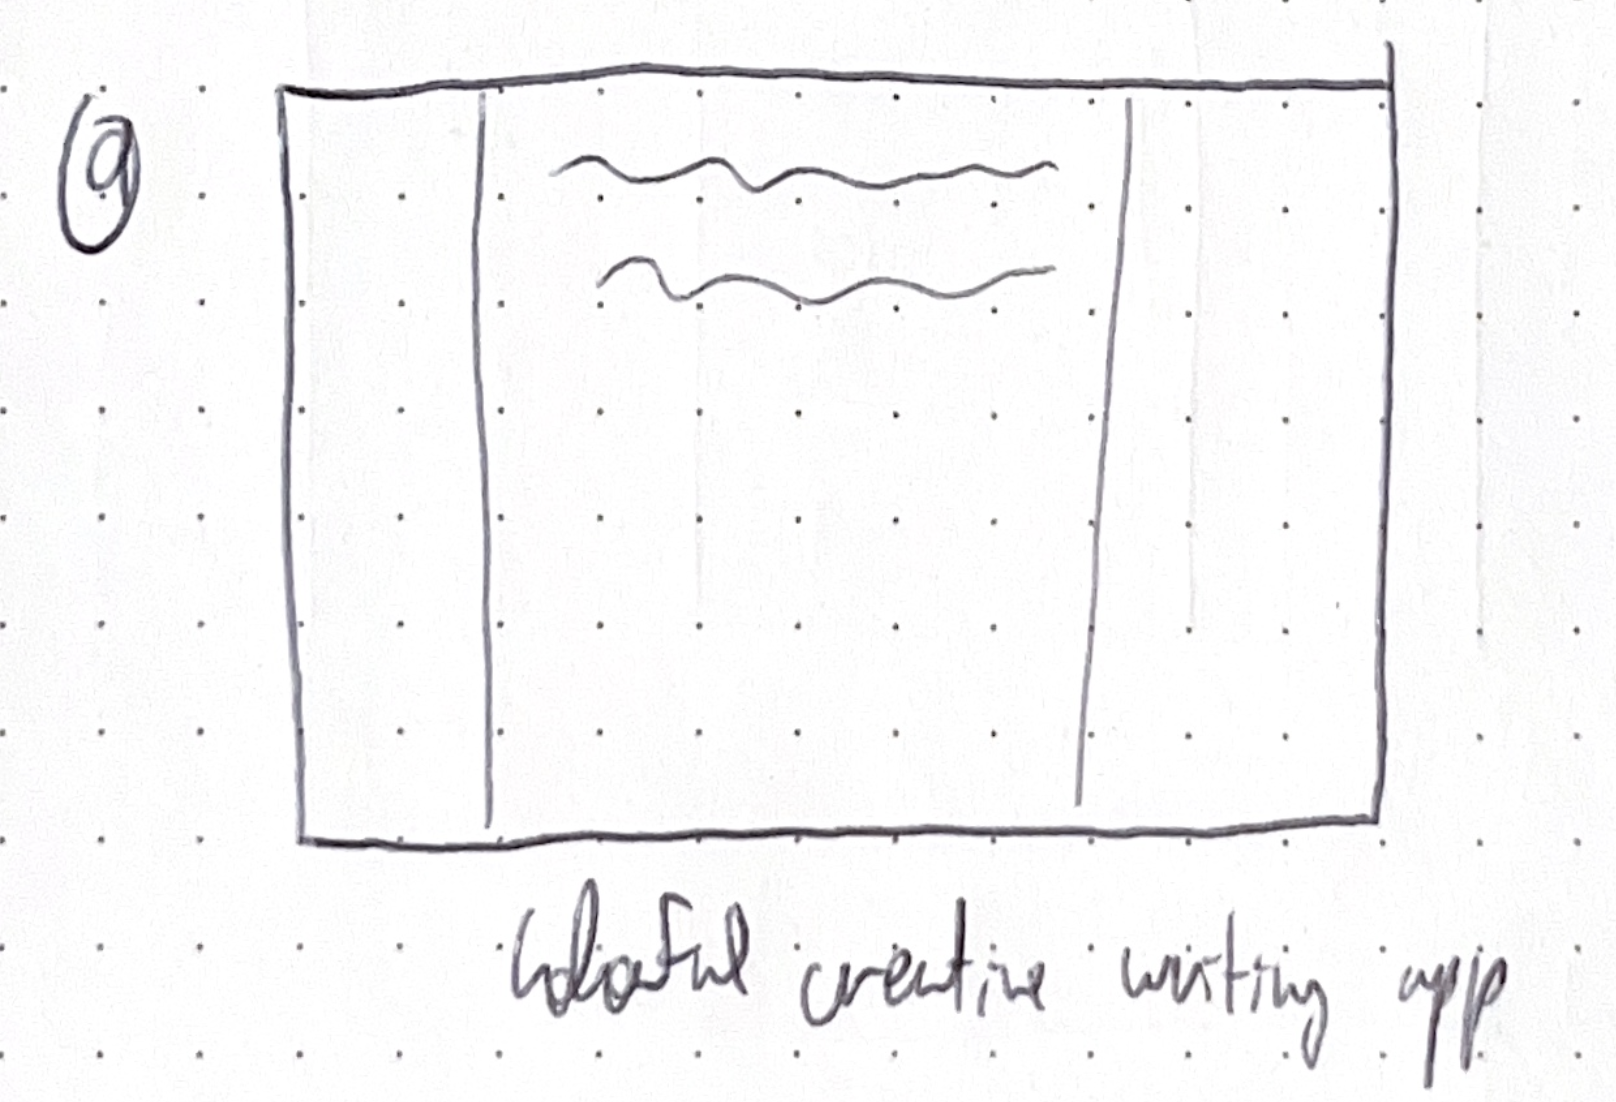 a
colorful creative writing app